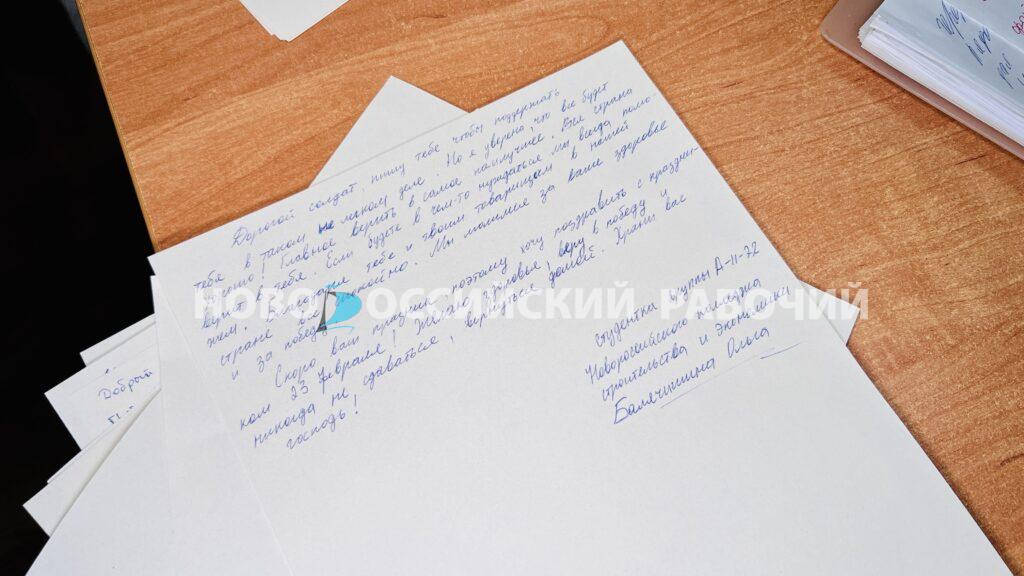 Дорогой солдат, пишу тебе чтобы поддержать
тебя в таком не легком деле. Но я уверена, что все будет
хорошо! Главное верить в самое наилучшее. Вся страна
верит в тебя. Если будете в чем-то нуждаться мы всегда помо-
жем. Благодаря тебе и твоим товарищам в нашей
стране все спокойно. Мы молимся за ваше здоровье
и за победу
Скоро ваш праздник, поэтому хочу поздравить с праздни-
ком 23 февраля! Желаю здоровья, веру в победу и
никогда не сдаваться, вернуться домой. Храни вас
господь!
студентка группы А-11-72
Новороссийского колледжа
строительства и экономики
Балячишина Ольга
НОВОРОССИЙСКИЙ РАБОЧИЙ
Добрый